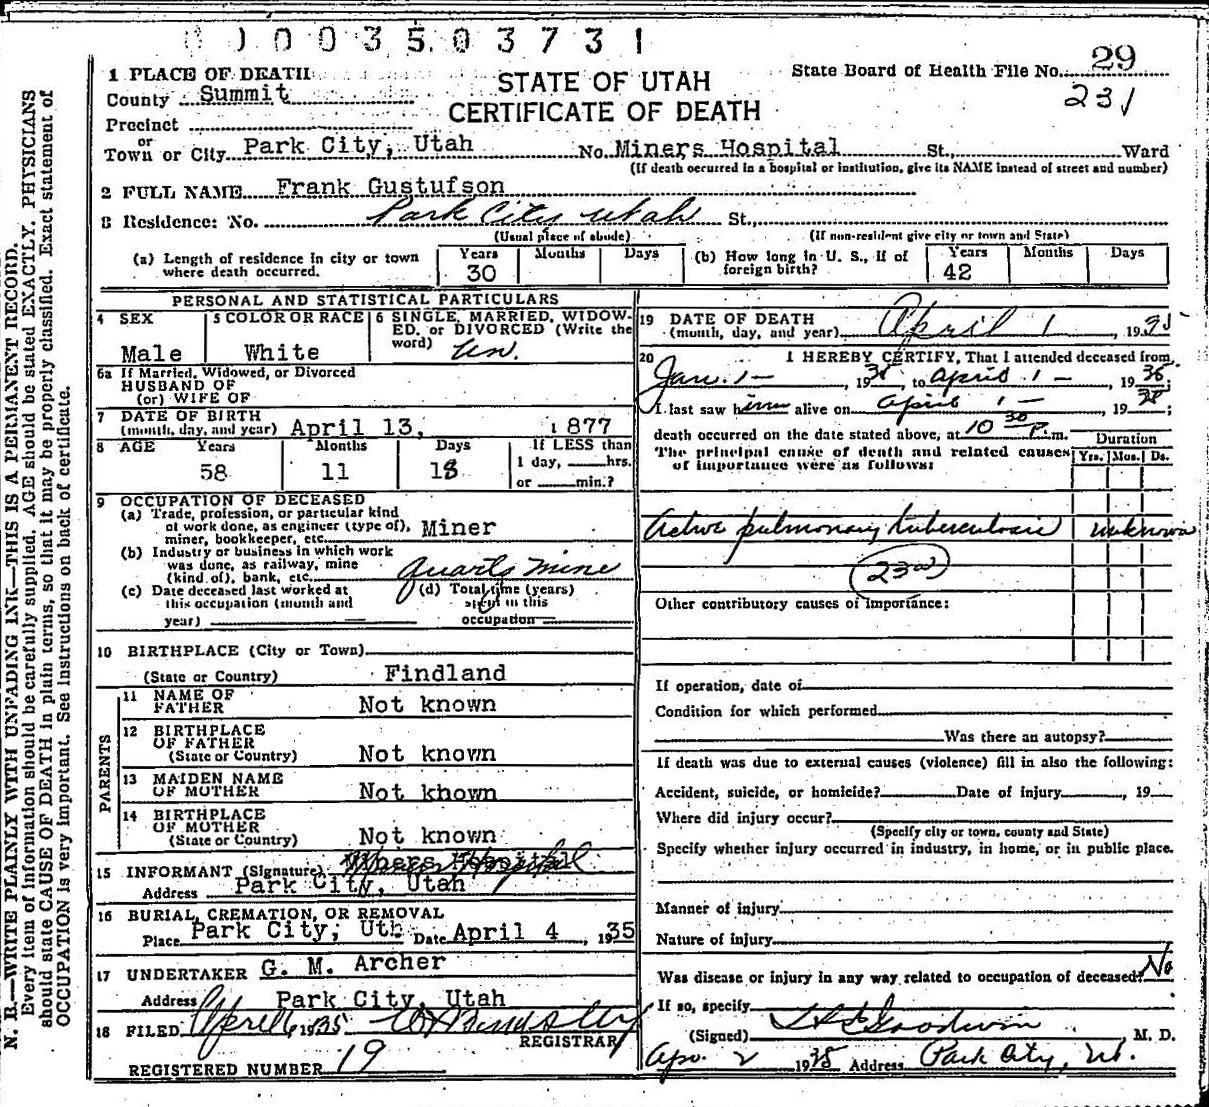 0 0 0 3 5 0 3 7 3 1
1 PLACE OF DEATH
STATE OF UTAH
CERTIFICATE OF DEATH
State Board of Health File No. 29
231
County Summit
Precinct
or
Town or City Park City, Utah No. Miners Hospital St., Ward
(If death occurred in a hospital or institution, give its NAME instead of street and number)
2 FULL NAME Frank Gustufson
3 Residence: No. Park City Utah St.,
(Usual place of abode) (If non-resident give city or town and State)
(a) Length of residence in city or town where death occurred. Years 30 Months Days
(b) How long in U. S., if of foreign birth? Years 42 Months Days
PERSONAL AND STATISTICAL PARTICULARS
4 SEX Male
5 COLOR OR RACE White
6 SINGLE, MARRIED, WIDOWED, or DIVORCED (Write the word) Un.
6a If Married, Widowed, or Divorced
HUSBAND OF
(or) WIFE OF
7 DATE OF BIRTH
(month, day, and year) April 13, 1877
8 AGE Years Months Days If LESS than
58 11 18 1 day, hrs.
or min.?
9 OCCUPATION OF DECEASED
(a) Trade, profession, or particular kind
of work done, as engineer (type of),
miner, bookkeeper, etc. Miner
(b) Industry or business in which work
was done, as railway, mine
(kind of), bank, etc. Quartz mine
(c) Date deceased last worked at
this occupation (month and
year)
(d) Total time (years)
spent in this
occupation
10 BIRTHPLACE (City or Town)
(State or Country) Findland
PARENTS
11 NAME OF
FATHER Not known
12 BIRTHPLACE
OF FATHER
(State or Country) Not known
13 MAIDEN NAME
OF MOTHER Not known
14 BIRTHPLACE
OF MOTHER
(State or Country) Not known
15 INFORMANT (Signature) Miners Hospital
Address Park City, Utah
16 BURIAL, CREMATION, OR REMOVAL
Place Park City, Uth Date April 4, 1935
17 UNDERTAKER G. M. Archer
Address Park City, Utah
18 FILED April 6, 1935
REGISTRAR
REGISTERED NUMBER 19
19 DATE OF DEATH
(month, day, and year) April 1, 1935
20 I HEREBY CERTIFY, That I attended deceased from
Jan. 1 -, 1935, to April 1 -, 1935;
I last saw him alive on April 1 -, 1935;
death occurred on the date stated above, at 10 30 P. m.
The principal cause of death and related causes
of importance were as follows:
Duration
Yrs. Mos. Ds.
Active pulmonary tuberculosis unknown
23
Other contributory causes of importance:
If operation, date of
Condition for which performed
Was there an autopsy?
If death was due to external causes (violence) fill in also the following:
Accident, suicide, or homicide? Date of injury, 19
Where did injury occur?
(Specify city or town, county and State)
Specify whether injury occurred in industry, in home, or in public place.
Manner of injury
Nature of injury
Was disease or injury in any way related to occupation of deceased? No
If so, specify
(Signed) Goodwin M. D.
Apr. 2 1935 Address Park City, Ut.
N. B.—WRITE PLAINLY WITH UNFADING INK—THIS IS A PERMANENT RECORD.
Every item of information should be carefully supplied. AGE should be stated EXACTLY. PHYSICIANS
should state CAUSE OF DEATH in plain terms, so that it may be properly classified. Exact statement of
OCCUPATION is very important. See instructions on back of certificate.